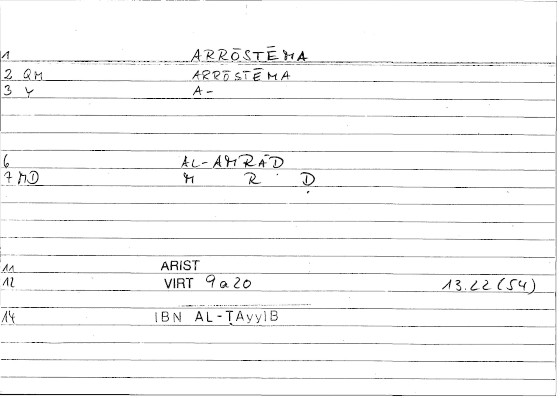 1 ARRŌSTĒMA
2 QM ARRŌSTĒMA
3 Y A-
6 AL-AMRĀḌ
7 MD M R Ḍ
11 ARIST
12 VIRT 9a20 13.22 (54)
14 IBN AL-ṬAyyIB